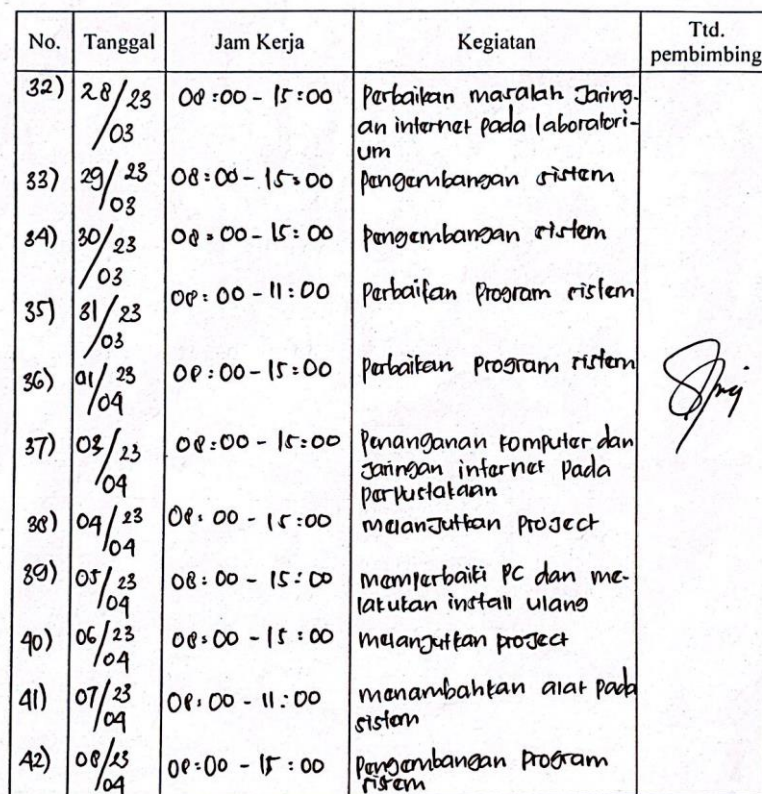 No. Tanggal Jam Kerja Kegiatan Ttd. pembimbing
32) 28/23 08:00 - 15:00 Perbaikan masalah Jaring-
/03 an internet pada laboratori-
um
33) 29/23 08:00 - 15:00 Pengembangan sistem
/03
34) 30/23 08:00 - 15:00 Pengembangan sistem
/03
35) 31/23 08:00 - 11:00 Perbaikan Program sistem
/03
36) 01/23 08:00 - 15:00 Perbaikan Program sistem
/04
37) 03/23 08:00 - 15:00 Penanganan komputer dan
/04 Jaringan internet pada
perpustakaan
38) 04/23 08:00 - 15:00 melanjutkan Project
/04
39) 05/23 08:00 - 15:00 memperbaiki PC dan me-
/04 lakukan install ulang
40) 06/23 08:00 - 15:00 melanjutkan project
/04
41) 07/23 08:00 - 11:00 menambahkan alat pada
/04 sistem
42) 08/23 08:00 - 15:00 Pengembangan Program
/04 sistem